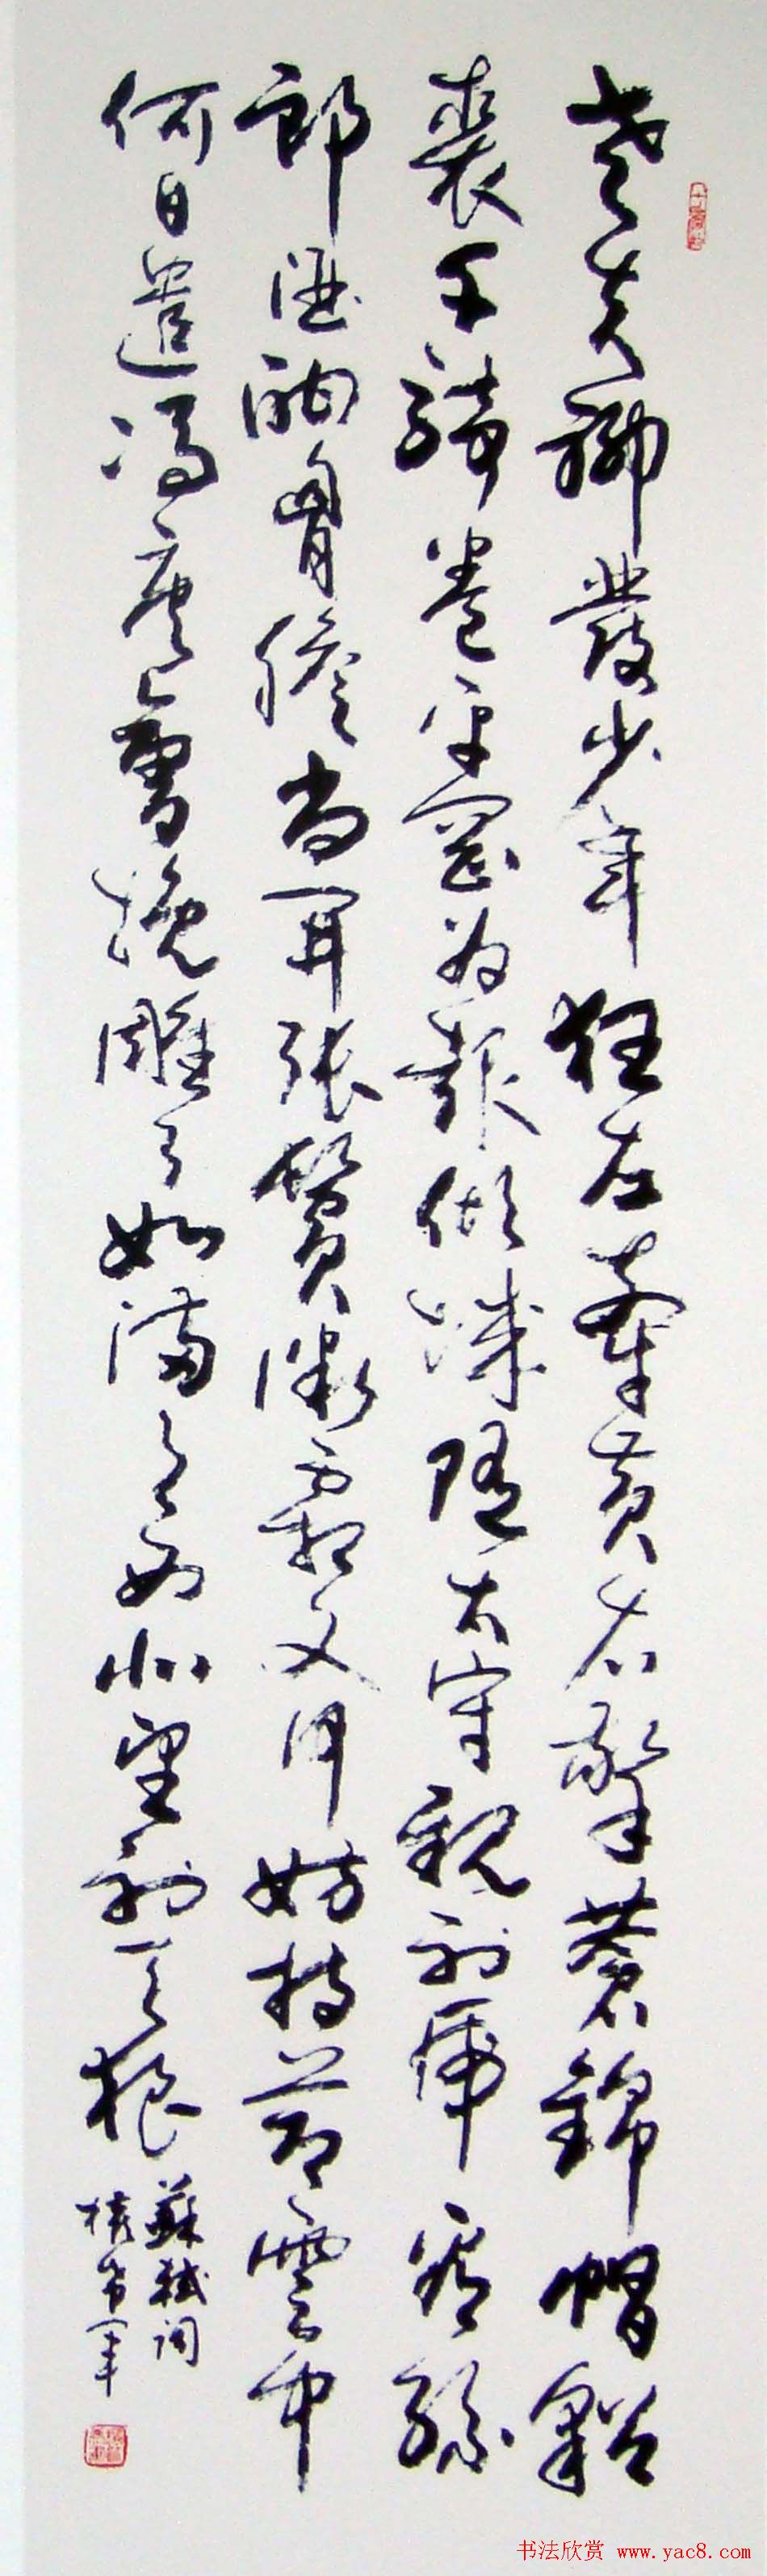 老夫聊發少年狂左牽黄右擎蒼錦帽貂
裘千騎卷平岡為報傾城隨太守親射虎看孫
郎酒酣胸膽尚開張鬢微霜又何妨持節雲中
何日遣馮唐會挽雕弓如滿月西北望射天狼
蘇軾詞
书法欣赏 www.yac8.com